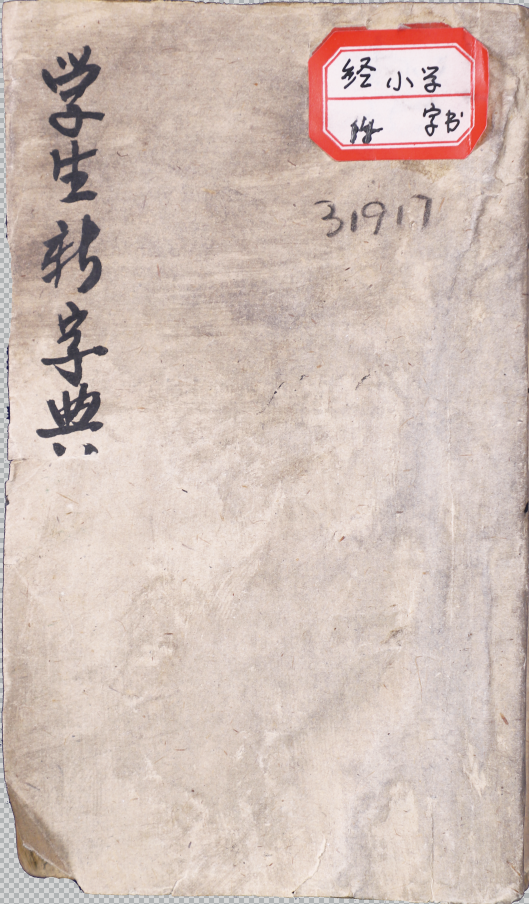 学生新字典
经 小学
字书
31917